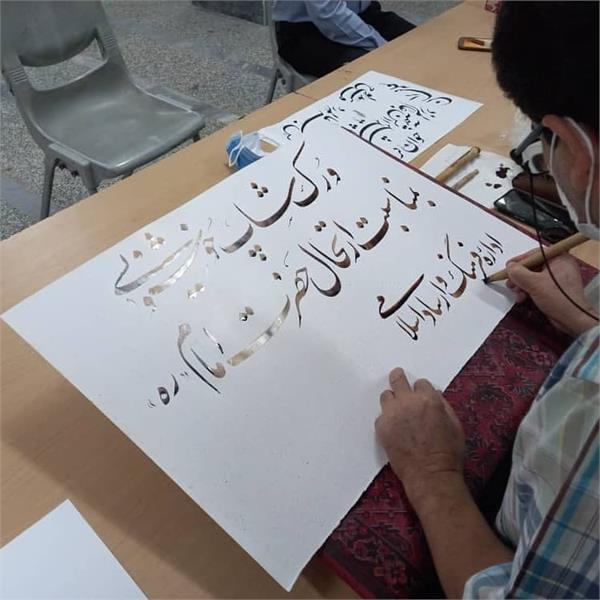 ورک شاپ خوشنویسی
بمناسبت ارتحال حضرت امام "ره"
اداره فرهنگ و ارشاد اسلامی